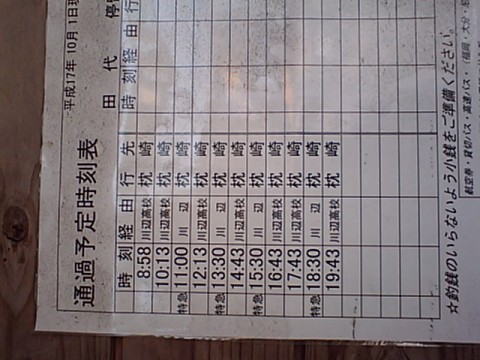 通過予定時刻表 平成17年 10月 1日現
田 代 停
時 刻 経 由 行 先 時 刻 経 由 行
8:58 川辺高校 枕 崎
10:13 川辺高校 枕 崎
特急 11:00 川 辺 枕 崎
12:13 川辺高校 枕 崎
特急 13:30 川 辺 枕 崎
14:43 川辺高校 枕 崎
特急 15:30 川 辺 枕 崎
16:43 川辺高校 枕 崎
17:43 川辺高校 枕 崎
特急 18:30 川 辺 枕 崎
19:43 川辺高校 枕 崎
☆釣銭のいらないよう小銭をご準備ください。
航空券・貸切バス・高速バス・(福岡・大分・